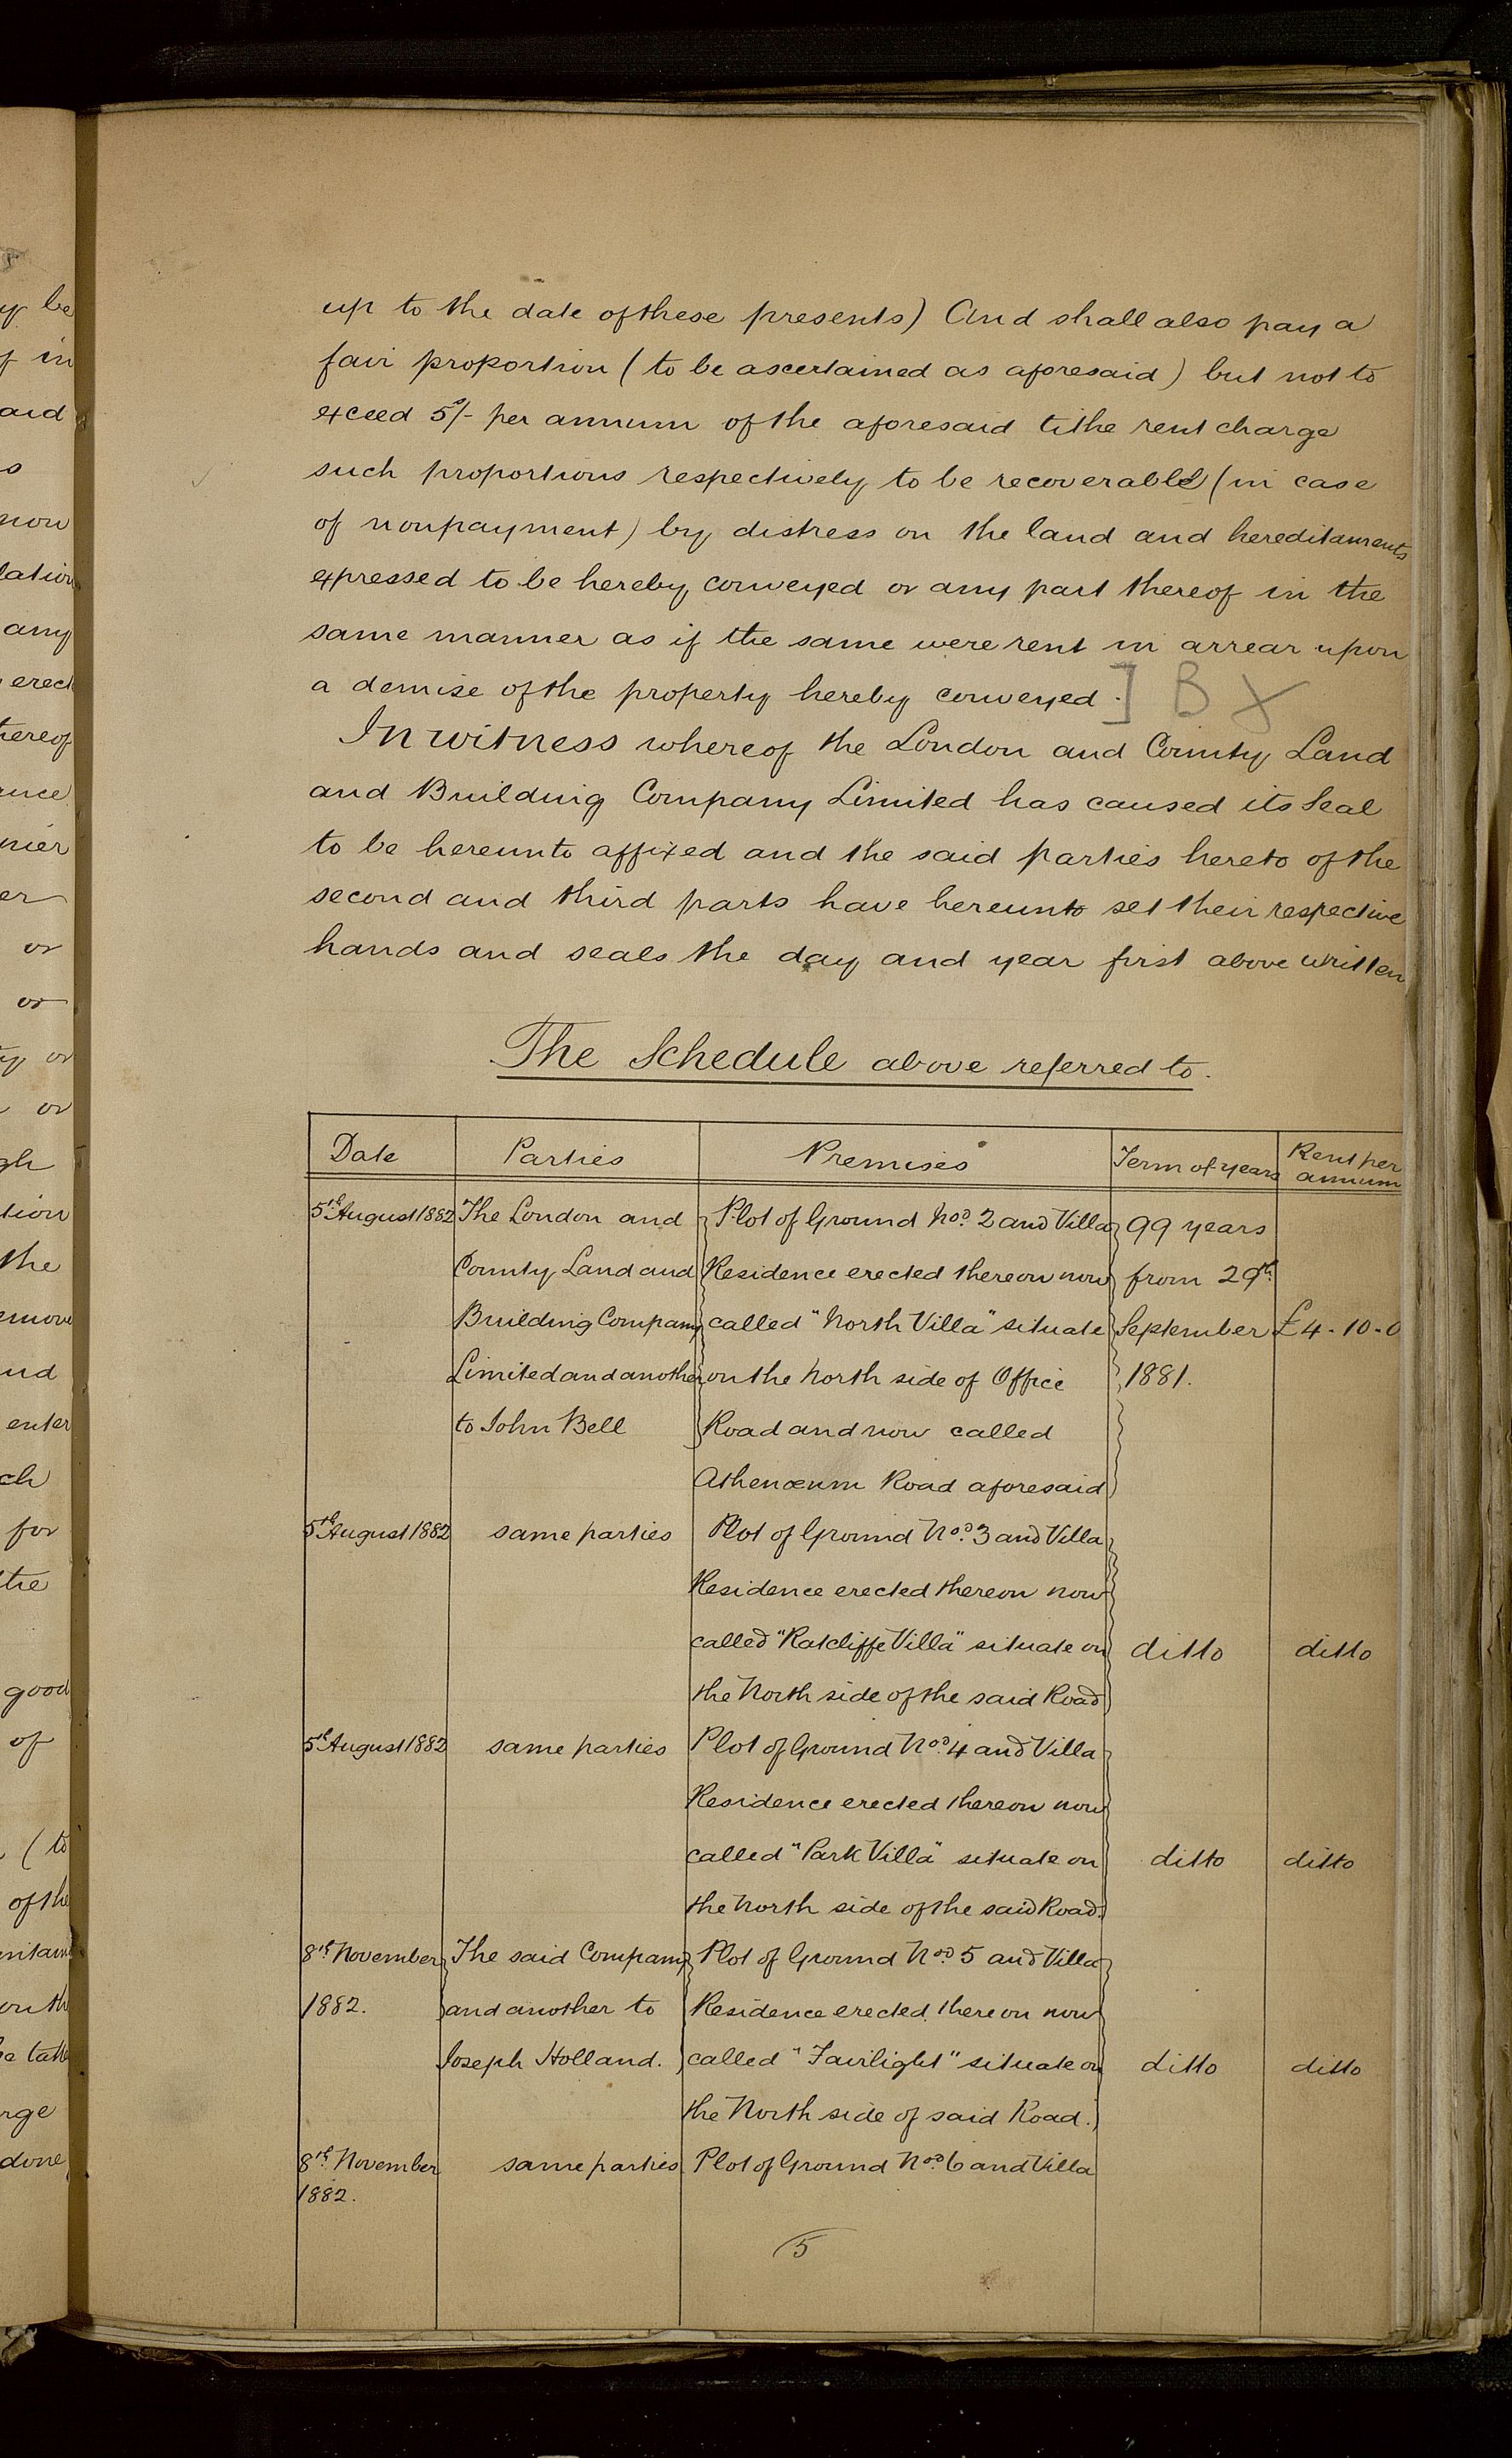 up to the date of these presents) And shall also pay a
fair proportion (to be ascertained as aforesaid) but not to
exceed 5/- per annum of the aforesaid tithe rent charge
such proportions respectively to be recoverable (in case
of nonpayment) by distress on the land and hereditaments
expressed to be hereby conveyed or any part thereof in the
same manner as if the same were rent in arrear upon
a demise of the property hereby conveyed. ] B X
In witness whereof the London and County Land
and Building Company Limited has caused its Seal
to be hereunto affixed and the said parties hereto of the
second and third parts have hereunto set their respective
hands and seals the day and year first above written
The Schedule above referred to.
Date Parties Premises Term of years Rent per annum
5th August 1882 The London and Plot of Ground No. 2 and Villa 99 years
County Land and Residence erected thereon now from 29th
Building Company called "North Villa" situate September £4-10-0
Limited and another on the North side of Office 1881.
to John Bell Road and now called
Athenæum Road aforesaid
5th August 1882 same parties Plot of Ground No. 3 and Villa
Residence erected thereon now
called "Ratcliffe Villa" situate on ditto ditto
the North side of the said Road
5th August 1882 same parties Plot of Ground No. 4 and Villa
Residence erected thereon now
called "Park Villa" situate on ditto ditto
the North side of the said Road.
8th November The said Company Plot of Ground No. 5 and Villa
1882. and another to Residence erected thereon now
Joseph Holland. called "Fairlight" situate on ditto ditto
the North side of said Road.
8th November same parties Plot of Ground No. 6 and Villa
1882.
5